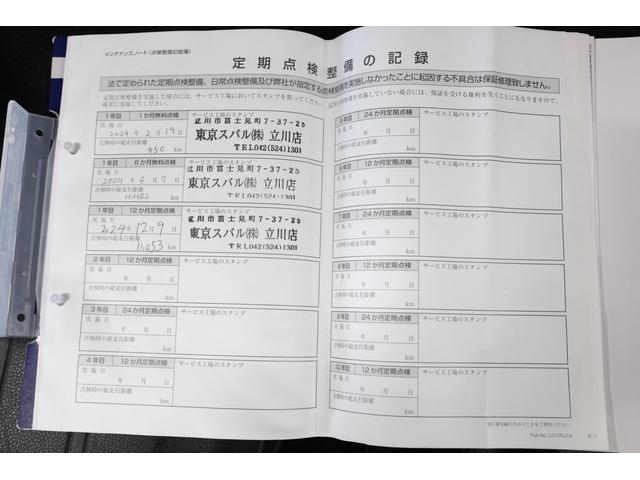 メンテナンスノート(点検整備記録簿)
定期点検整備の記録
法で定められた定期点検整備、日常点検整備及び弊社が指定する点検整備を実施しなかったことに起因する不具合は保証修理致しません。
定期点検整備を実施した場合には、サービス工場においてスタンプを貰ってください。
確実に実施してください。
点検整備を実施していない場合は、保証を受ける権利を失うことにもなりますので、
1年目 1か月無料点検 サービス工場のスタンプ
実施日
2024年2月19日
点検時の総走行距離
850 km
立川市富士見町7-37-25
東京スバル㈱ 立川店
☎TEL042(524)1301
1年目 6か月無料点検 サービス工場のスタンプ
実施日
2024年6月7日
点検時の総走行距離
km
立川市富士見町7-37-25
東京スバル㈱ 立川店
☎TEL042(524)1301
1年目 12か月定期点検 サービス工場のスタンプ
実施日
2024年12月9日
点検時の総走行距離
11,053 km
立川市富士見町7-37-25
東京スバル㈱ 立川店
☎TEL042(524)1301
2年目 12か月定期点検 サービス工場のスタンプ
実施日
年 月 日
点検時の総走行距離
km
3年目 24か月定期点検 サービス工場のスタンプ
実施日
年 月 日
点検時の総走行距離
km
4年目 12か月定期点検 サービス工場のスタンプ
実施日
年 月 日
点検時の総走行距離
km
5年目 24か月定期点検 サービス工場のスタンプ
実施日
年 月 日
点検時の総走行距離
km
6年目 12か月定期点検 サービス工場のスタンプ
実施日
年 月 日
点検時の総走行距離
km
7年目 24か月定期点検 サービス工場のスタンプ
実施日
年 月 日
点検時の総走行距離
km
8年目 12か月定期点検 サービス工場のスタンプ
実施日
年 月 日
点検時の総走行距離
km
9年目 24か月定期点検 サービス工場のスタンプ
実施日
年 月 日
点検時の総走行距離
km
10年目 12か月定期点検 サービス工場のスタンプ
実施日
年 月 日
点検時の総走行距離
km